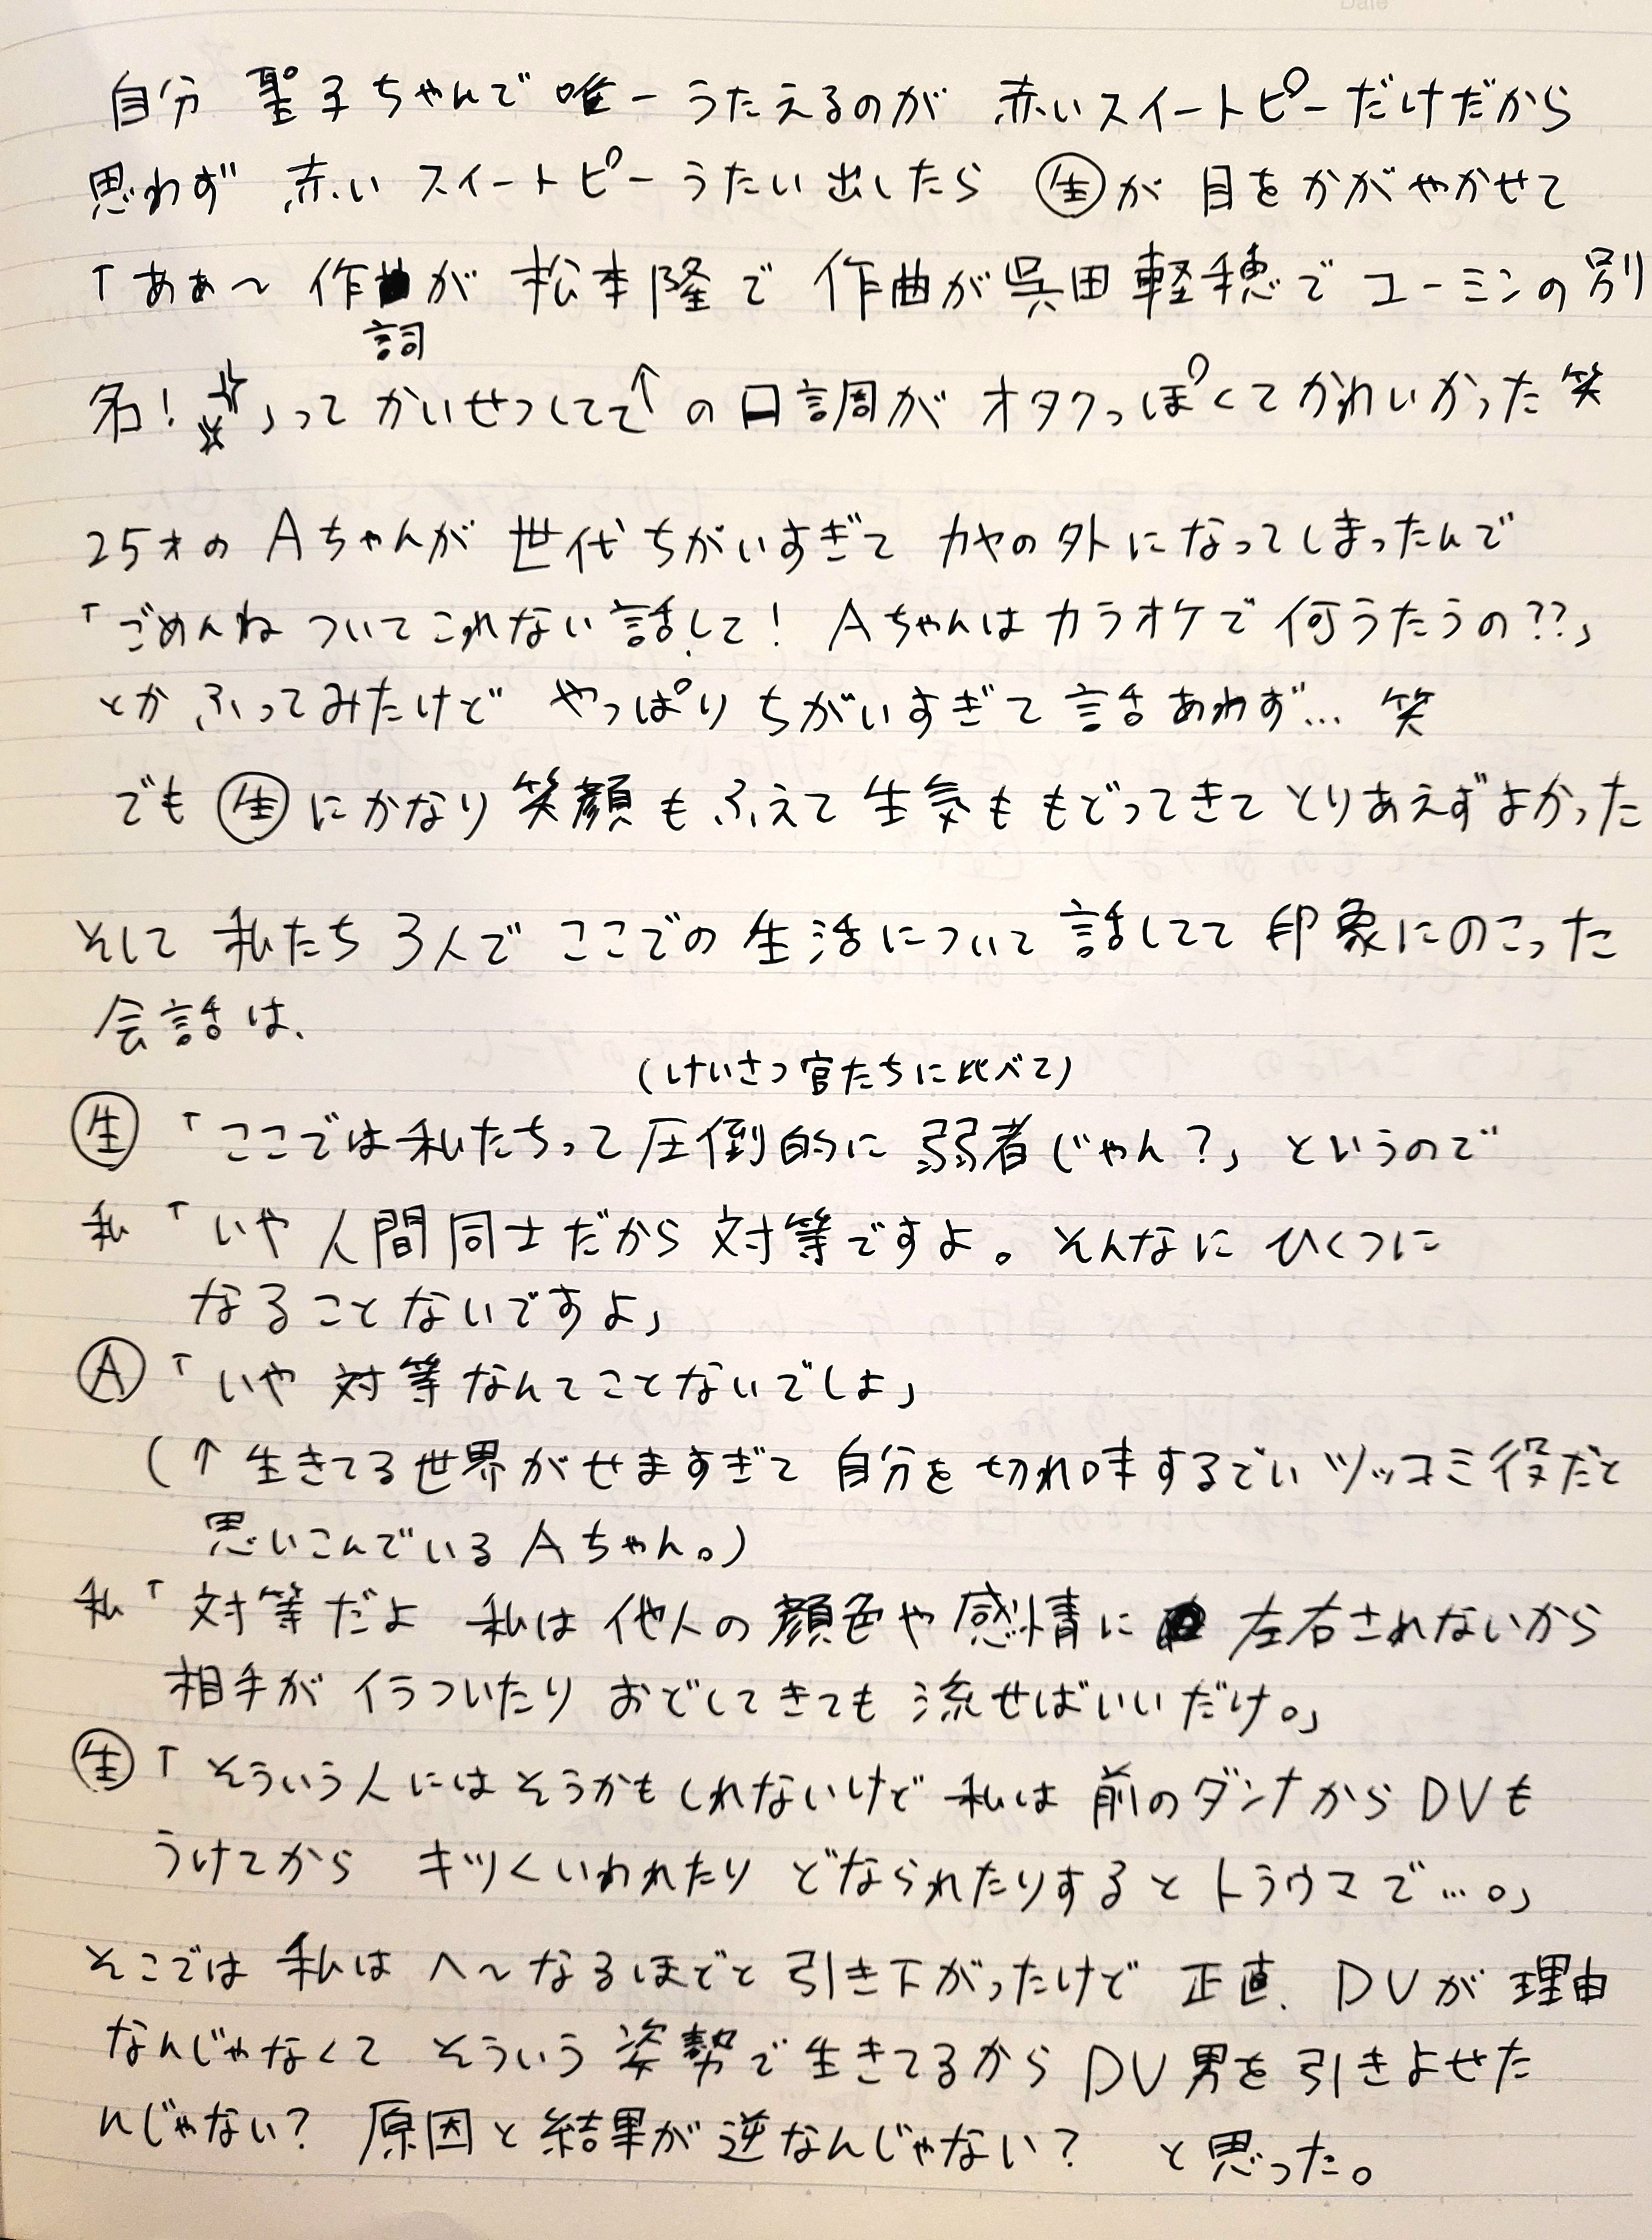 Date
自分 聖子ちゃんで 唯一 うたえるのが 赤いスイートピーだけだから
思わず 赤い スイートピー うたい出したら ㊤が 目をかがやかせて
「あぁ〜 作詞が 松本隆で 作曲が呉田軽穂で ユーミンの別
名！」って かいせつしてて↑の口調が オタクっぽくてかわいかった笑
25才の Aちゃんが 世代ちがいすぎて カヤの外になってしまったんで
「ごめんね ついてこれない話して！ Aちゃんは カラオケで 何うたうの??」
とか ふってみたけど やっぱり ちがいすぎて 話あわず… 笑
でも 生にかなり 笑顔も ふえて 生気も もどってきて とりあえずよかった
そして 私たち 3人で ここでの 生活について 話してて 印象にのこった
会話は、
(けいさつ官たちに比べて)
生 「ここでは私たちって圧倒的に 弱者じゃん？」というので
私 「いや 人間同士だから 対等ですよ。そんなに ひくつに
なることないですよ」
A 「いや 対等なんてことないでしょ」
(↑ 生きてる世界がせますぎて 自分を 切れ味するどい ツッコミ役だと
思いこんでいる Aちゃん。)
私「対等だよ 私は 他人の顔色や感情に 左右されないから
相手が イラついたり おどしてきても 流せばいいだけ。」
生「そういう人にはそうかもしれないけど 私は 前のダンナから DVも
うけてから キツくいわれたり どなられたりすると トラウマで…。」
そこでは 私は へ〜なるほどと 引き下がったけど 正直、DVが 理由
なんじゃなくて そういう 姿勢で生きてるから DV男を引きよせた
んじゃない？ 原因と結果が逆なんじゃない？ と思った。